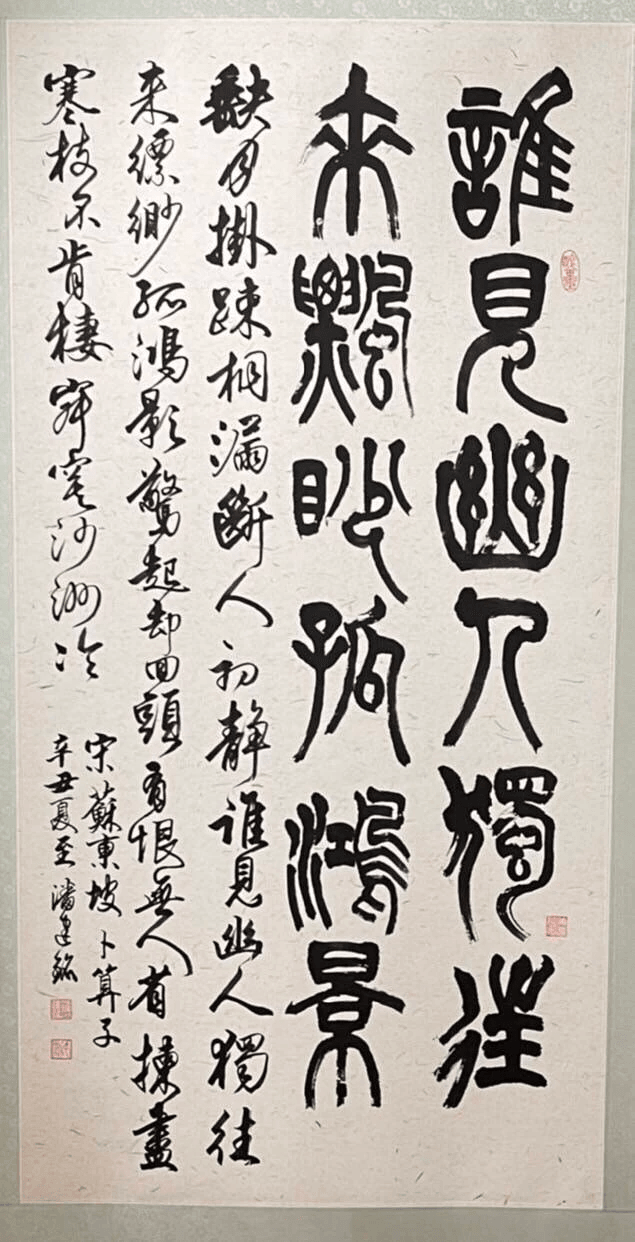 誰見幽人獨往
來飄眇孤鴻景
缺月掛踈桐漏斷人初靜誰見幽人獨往
来縹緲孤鴻影驚起却回頭有恨無人省揀盡
寒枝不肯棲寂寞沙洲冷
宋蘇東坡 卜算子
辛丑夏至 潘建銘